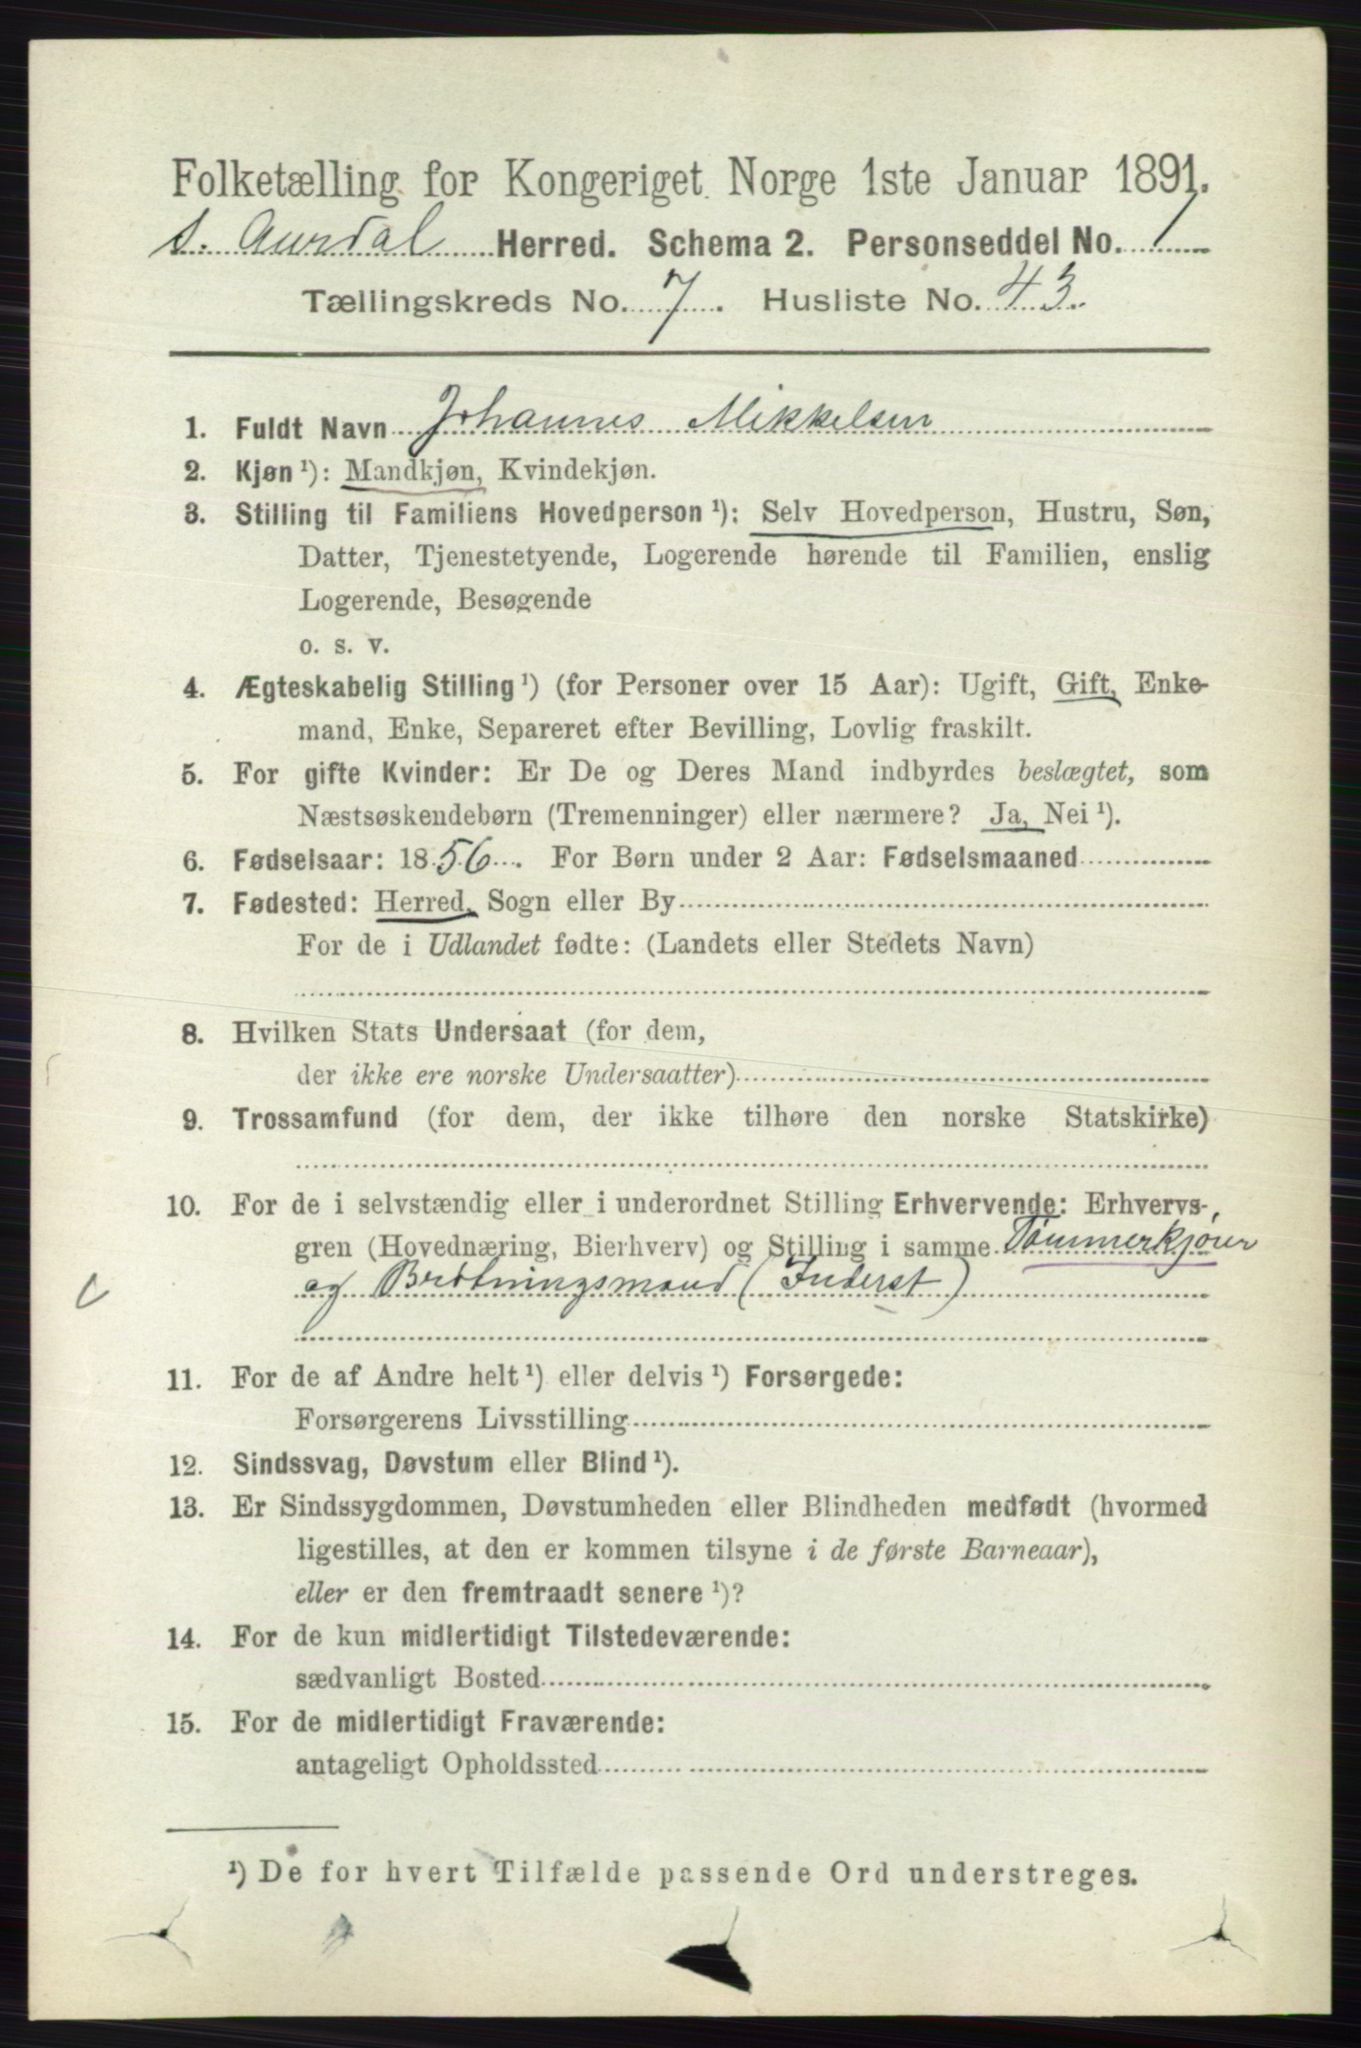 Folketælling for Kongeriget Norge 1ste Januar 1891.
S. Aurdal Herred. Schema 2. Personseddel No. 1
Tællingskreds No. 7. Husliste No. 43.
1. Fuldt Navn Johannes Mikkelsen
2. Kjøn ¹): Mandkjøn, Kvindekjøn.
3. Stilling til Familiens Hovedperson ¹): Selv Hovedperson, Hustru, Søn,
Datter, Tjenestetyende, Logerende hørende til Familien, enslig
Logerende, Besøgende
o. s. v.
4. Ægteskabelig Stilling ¹) (for Personer over 15 Aar): Ugift, Gift, Enke-
mand, Enke, Separeret efter Bevilling, Lovlig fraskilt.
5. For gifte Kvinder: Er De og Deres Mand indbyrdes beslægtet, som
Næstsøskendebørn (Tremenninger) eller nærmere? Ja, Nei ¹).
6. Fødselsaar: 1856. For Børn under 2 Aar: Fødselsmaaned
7. Fødested: Herred, Sogn eller By
For de i Udlandet fødte: (Landets eller Stedets Navn)
8. Hvilken Stats Undersaat (for dem,
der ikke ere norske Undersaatter)
9. Trossamfund (for dem, der ikke tilhøre den norske Statskirke)
10. For de i selvstændig eller i underordnet Stilling Erhvervende: Erhvervs-
gren (Hovednæring, Bierhverv) og Stilling i samme Tømmerkjører
og Brøtningsmand (Inderst)
11. For de af Andre helt ¹) eller delvis ¹) Forsørgede:
Forsørgerens Livsstilling
12. Sindssvag, Døvstum eller Blind ¹).
13. Er Sindssygdommen, Døvstumheden eller Blindheden medfødt (hvormed
ligestilles, at den er kommen tilsyne i de første Barneaar),
eller er den fremtraadt senere ¹)?
14. For de kun midlertidigt Tilstedeværende:
sædvanligt Bosted
15. For de midlertidigt Fraværende:
antageligt Opholdssted
¹) De for hvert Tilfælde passende Ord understreges.